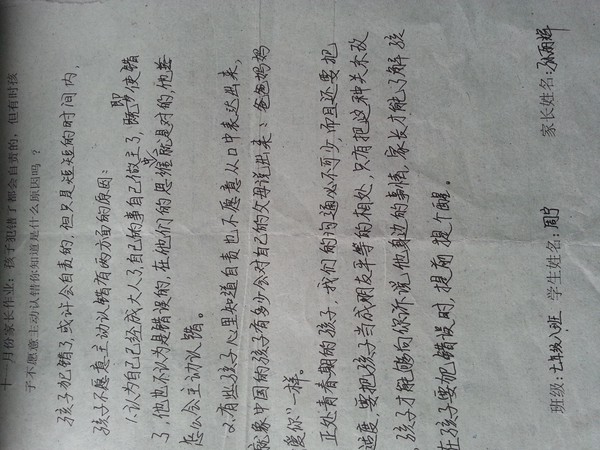 十一月份家长作业：孩子犯错了都会自责的，但有时孩
子不愿意主动认错你知道是什么原因吗？
孩子犯错了，或许会自责的，但只是短短的时间内，
孩子不愿意主动认错有两方面的原因：
1.认为自己已经成大人了，自己的事自己做主了，即使错
了，他也不认为是错误的，在他们的思维中就是对的，他怎
怎么会主动认错。
2.有些孩子心里知道自责也不愿意从口中表达出来，
就象中国的孩子有多少会对自己的父母说出来：爸爸妈妈
爱你"一样。
正处青春期的孩子，我们的沟通必不可少，而且还要把
态度，要把孩子当成朋友平等的相处，只有把这种关系改
，孩子才能够向你诉说他身边的事情，家长才能了解孩
在孩子要犯错误时，提前提个醒。
班级：七年级八班 学生姓名：周宁 家长姓名：